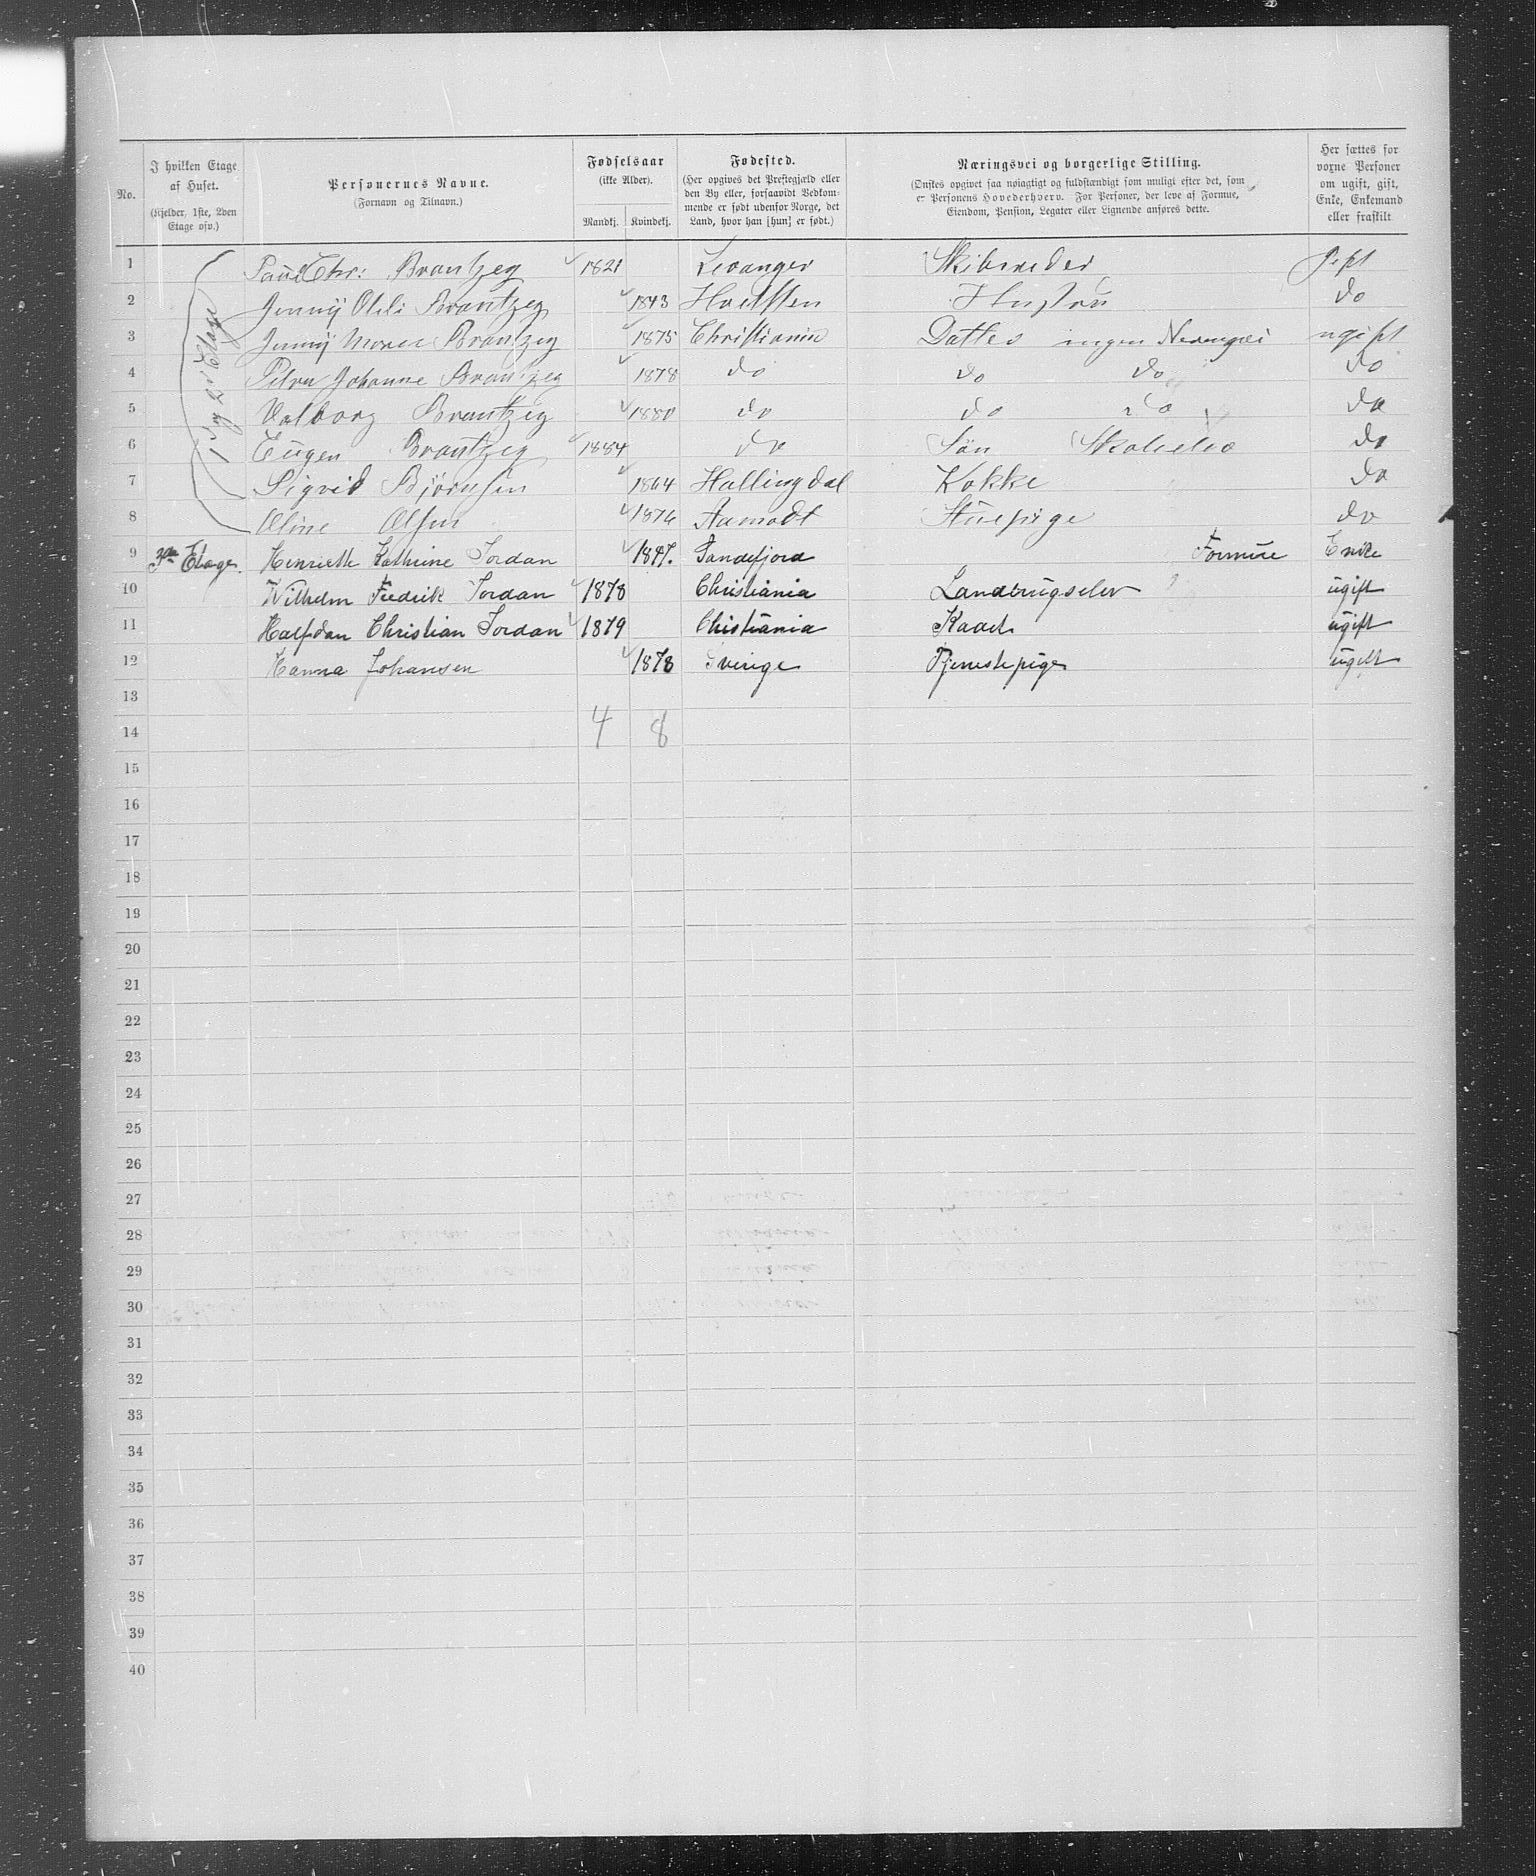 No.
I hvilken Etage af Huset.
(Kjelder, 1ste, 2den Etage osv.)
Personernes Navne.
(Fornavn og Tilnavn.)
Fødselsaar
(ikke Alder).
Mandkj. Kvindekj.
Fødested.
(Her opgives det Prestegjæld eller
den By eller, forsaavidt Vedkom-
mende er født udenfor Norge, det
Land, hvor han [hun] er født.)
Næringsvei og borgerlige Stilling.
(Ønskes opgivet saa nøiagtigt og fuldstændigt som muligt efter det, som
er Personens Hovederhverv. For Personer, der leve af Formue,
Eiendom, Pension, Legater eller Lignende anføres dette.
Her sættes for
voxne Personer
om ugift, gift,
Enke, Enkemand
eller fraskilt
1 Paul Chr: Brantzeg 1821 Levanger Skibsreder gift
2 Jenny Brantzeg 1843 Hustru do
3 Jenny Brantzeg 1875 Christiania Datter ingen ugift
4 Petra Johanne Brantzeg 1878 do do do do
5 Valborg Brantzeg 1880 do do do do
6 Eugen Brantzeg 1884 do Søn Skoleelev do
7 Sigrid Bjørnsen 1864 Hallingdal Kokke do
8 Oline Olsen 1876 Aamodt Stuepige do
1 og 2 Etage
9 3die Etage. Henriette Kathrine Jordan 1847. Sandefjord Formue Enke
10 Wilhelm Fredrik Jordan 1878 Christiania Landbrugselev ugift
11 Halfdan Christian Jordan 1879 Christiania Kadet ugift
12 Hanna Johansen 1878 Sverige Tjenestepige ugift
13
4 8
14
15
16
17
18
19
20
21
22
23
24
25
26
27
28
29
30
31
32
33
34
35
36
37
38
39
40